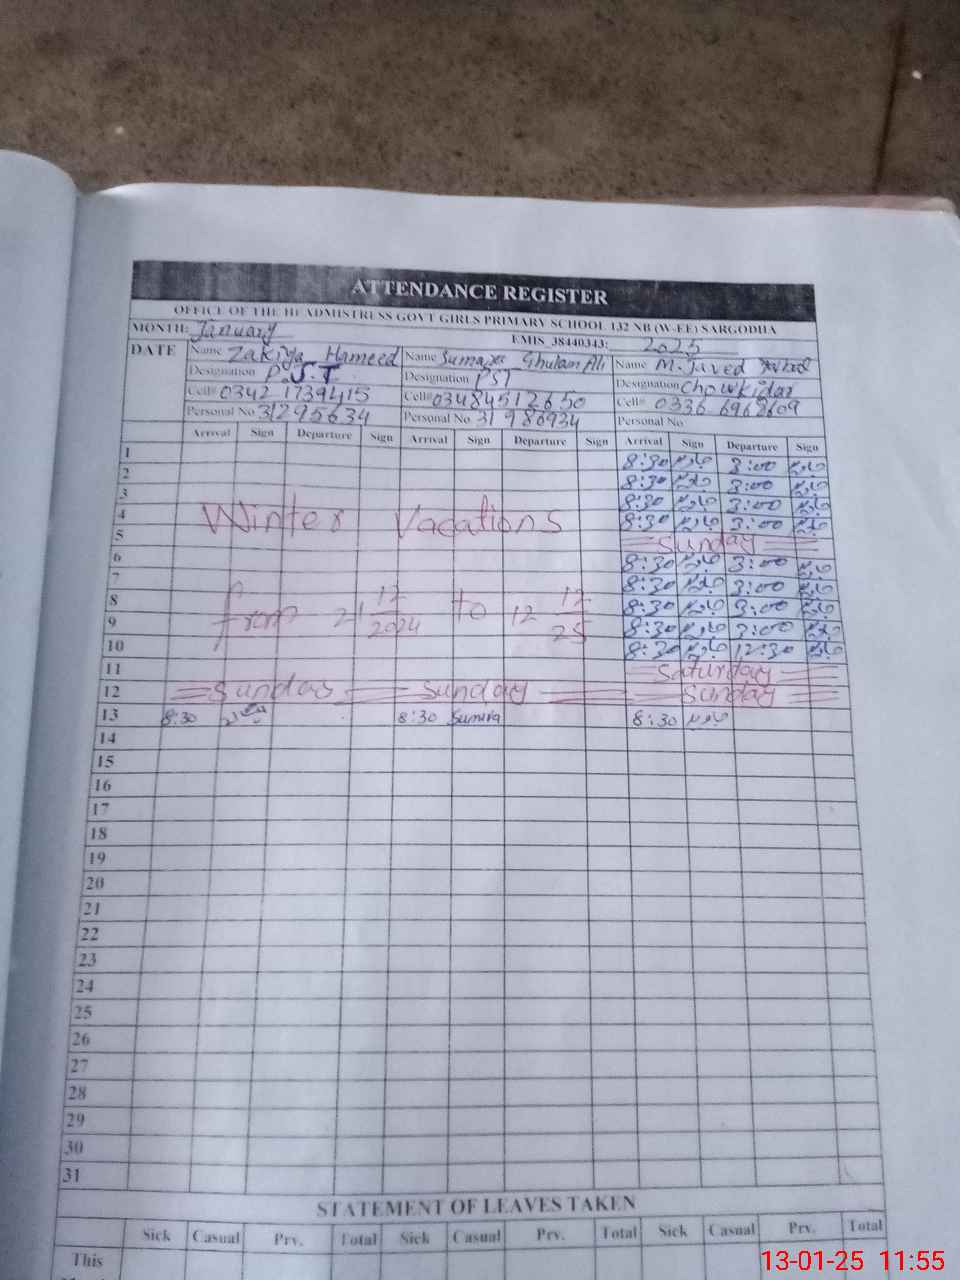 ATTENDANCE REGISTER
OFFICE OF THE HEADMISTRESS GOVT GIRLS PRIMARY SCHOOL 132 NB (W-EE) SARGODHA
MONTH: January EMIS_38440343: 2025
DATE Name Zakiya Hameed Name Sumaira Ghulam Ali Name M. Javed
Designation P.S.T. Designation PST Designation Chowkidar
Cell# 0342 1739415 Cell# 03484512650 Cell# 0336 6962609
Personal No 31295634 Personal No 31986934 Personal No
Arrival Sign Departure Sign Arrival Sign Departure Sign Arrival Sign Departure Sign
1 8:30 جاوید 3:00 جاوید
2 8:30 جاوید 3:00 جاوید
3 8:30 جاوید 3:00 جاوید
4 Winter Vacations 8:30 جاوید 3:00 جاوید
5 Sunday
6 8:30 جاوید 3:00 جاوید
7 8:30 جاوید 3:00 جاوید
8 from 21 12 2024 to 12 12 25 8:30 جاوید 3:00 جاوید
9 8:30 جاوید 3:00 جاوید
10 8:30 جاوید 12:30 جاوید
11 Saturday
12 Sunday Sunday Sunday
13 8:30 8:30 Sumira 8:30 جاوید
14
15
16
17
18
19
20
21
22
23
24
25
26
27
28
29
30
31
STATEMENT OF LEAVES TAKEN
Sick Casual Prv. Total Sick Casual Prv. Total Sick Casual Prv. Total
This
13-01-25 11:55